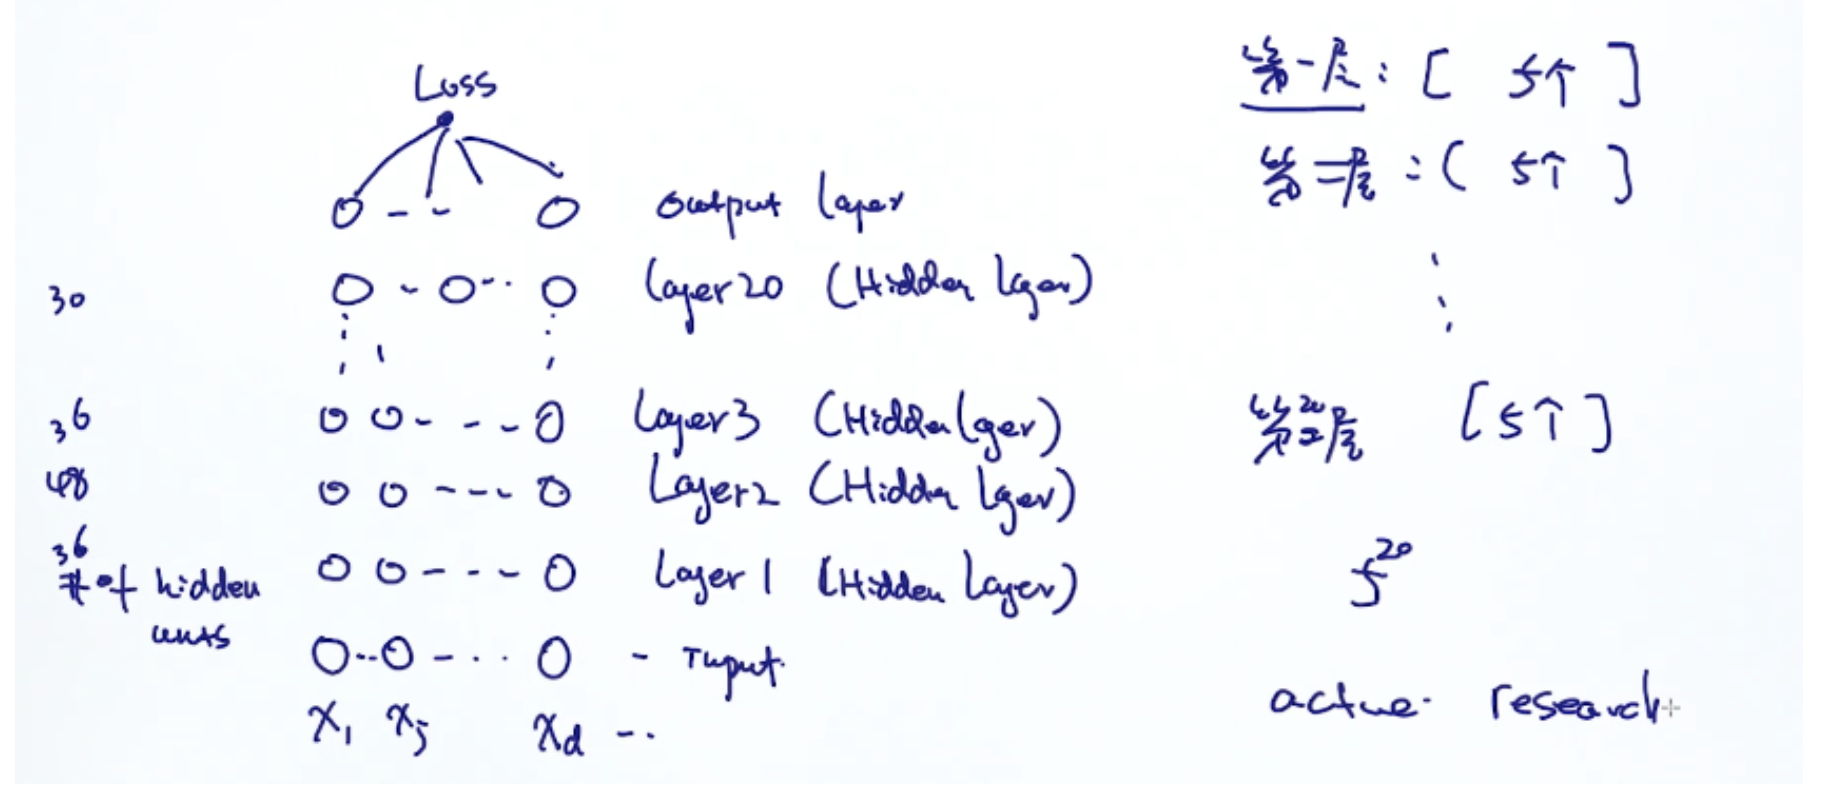 Loss
output layer
30 layer 20 (Hidden layer)
36 Layer 3 (Hidden layer)
48 Layer 2 (Hidden layer)
36 Layer 1 (Hidden Layer)
# of hidden
units
- Input
x₁ xⱼ x_d ...
第一层: [ 5个 ]
第二层: [ 5个 ]
第20层 [5个]
5²⁰
active research